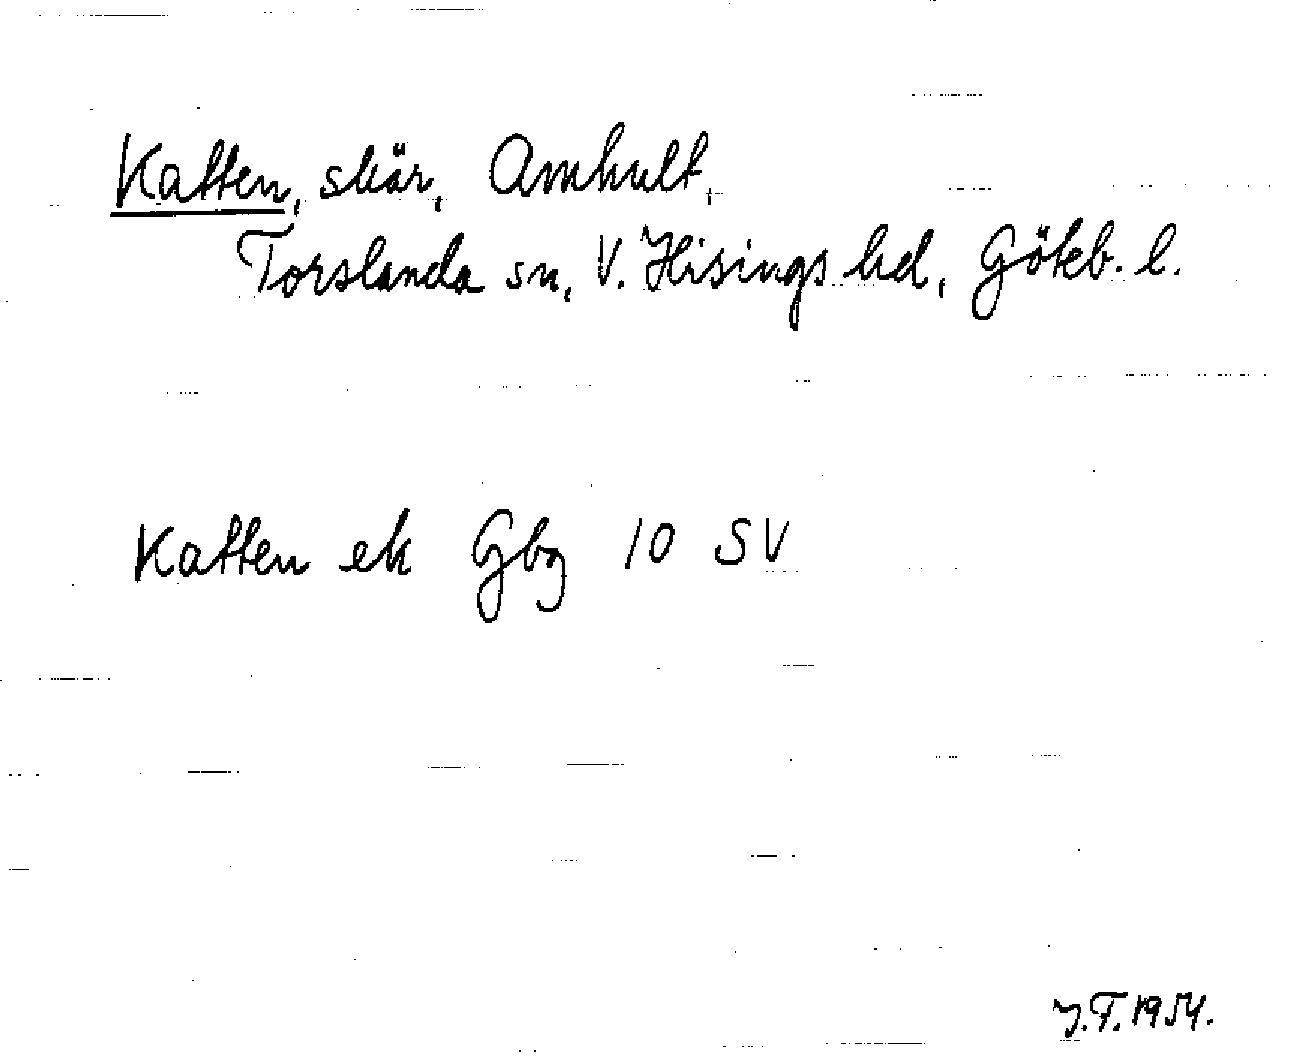 Katten, skär, Amhult,
Torslanda sn, V. Hisings hd, Göteb. l.
Katten ek Gbg 10 SV
J.T. 1954.